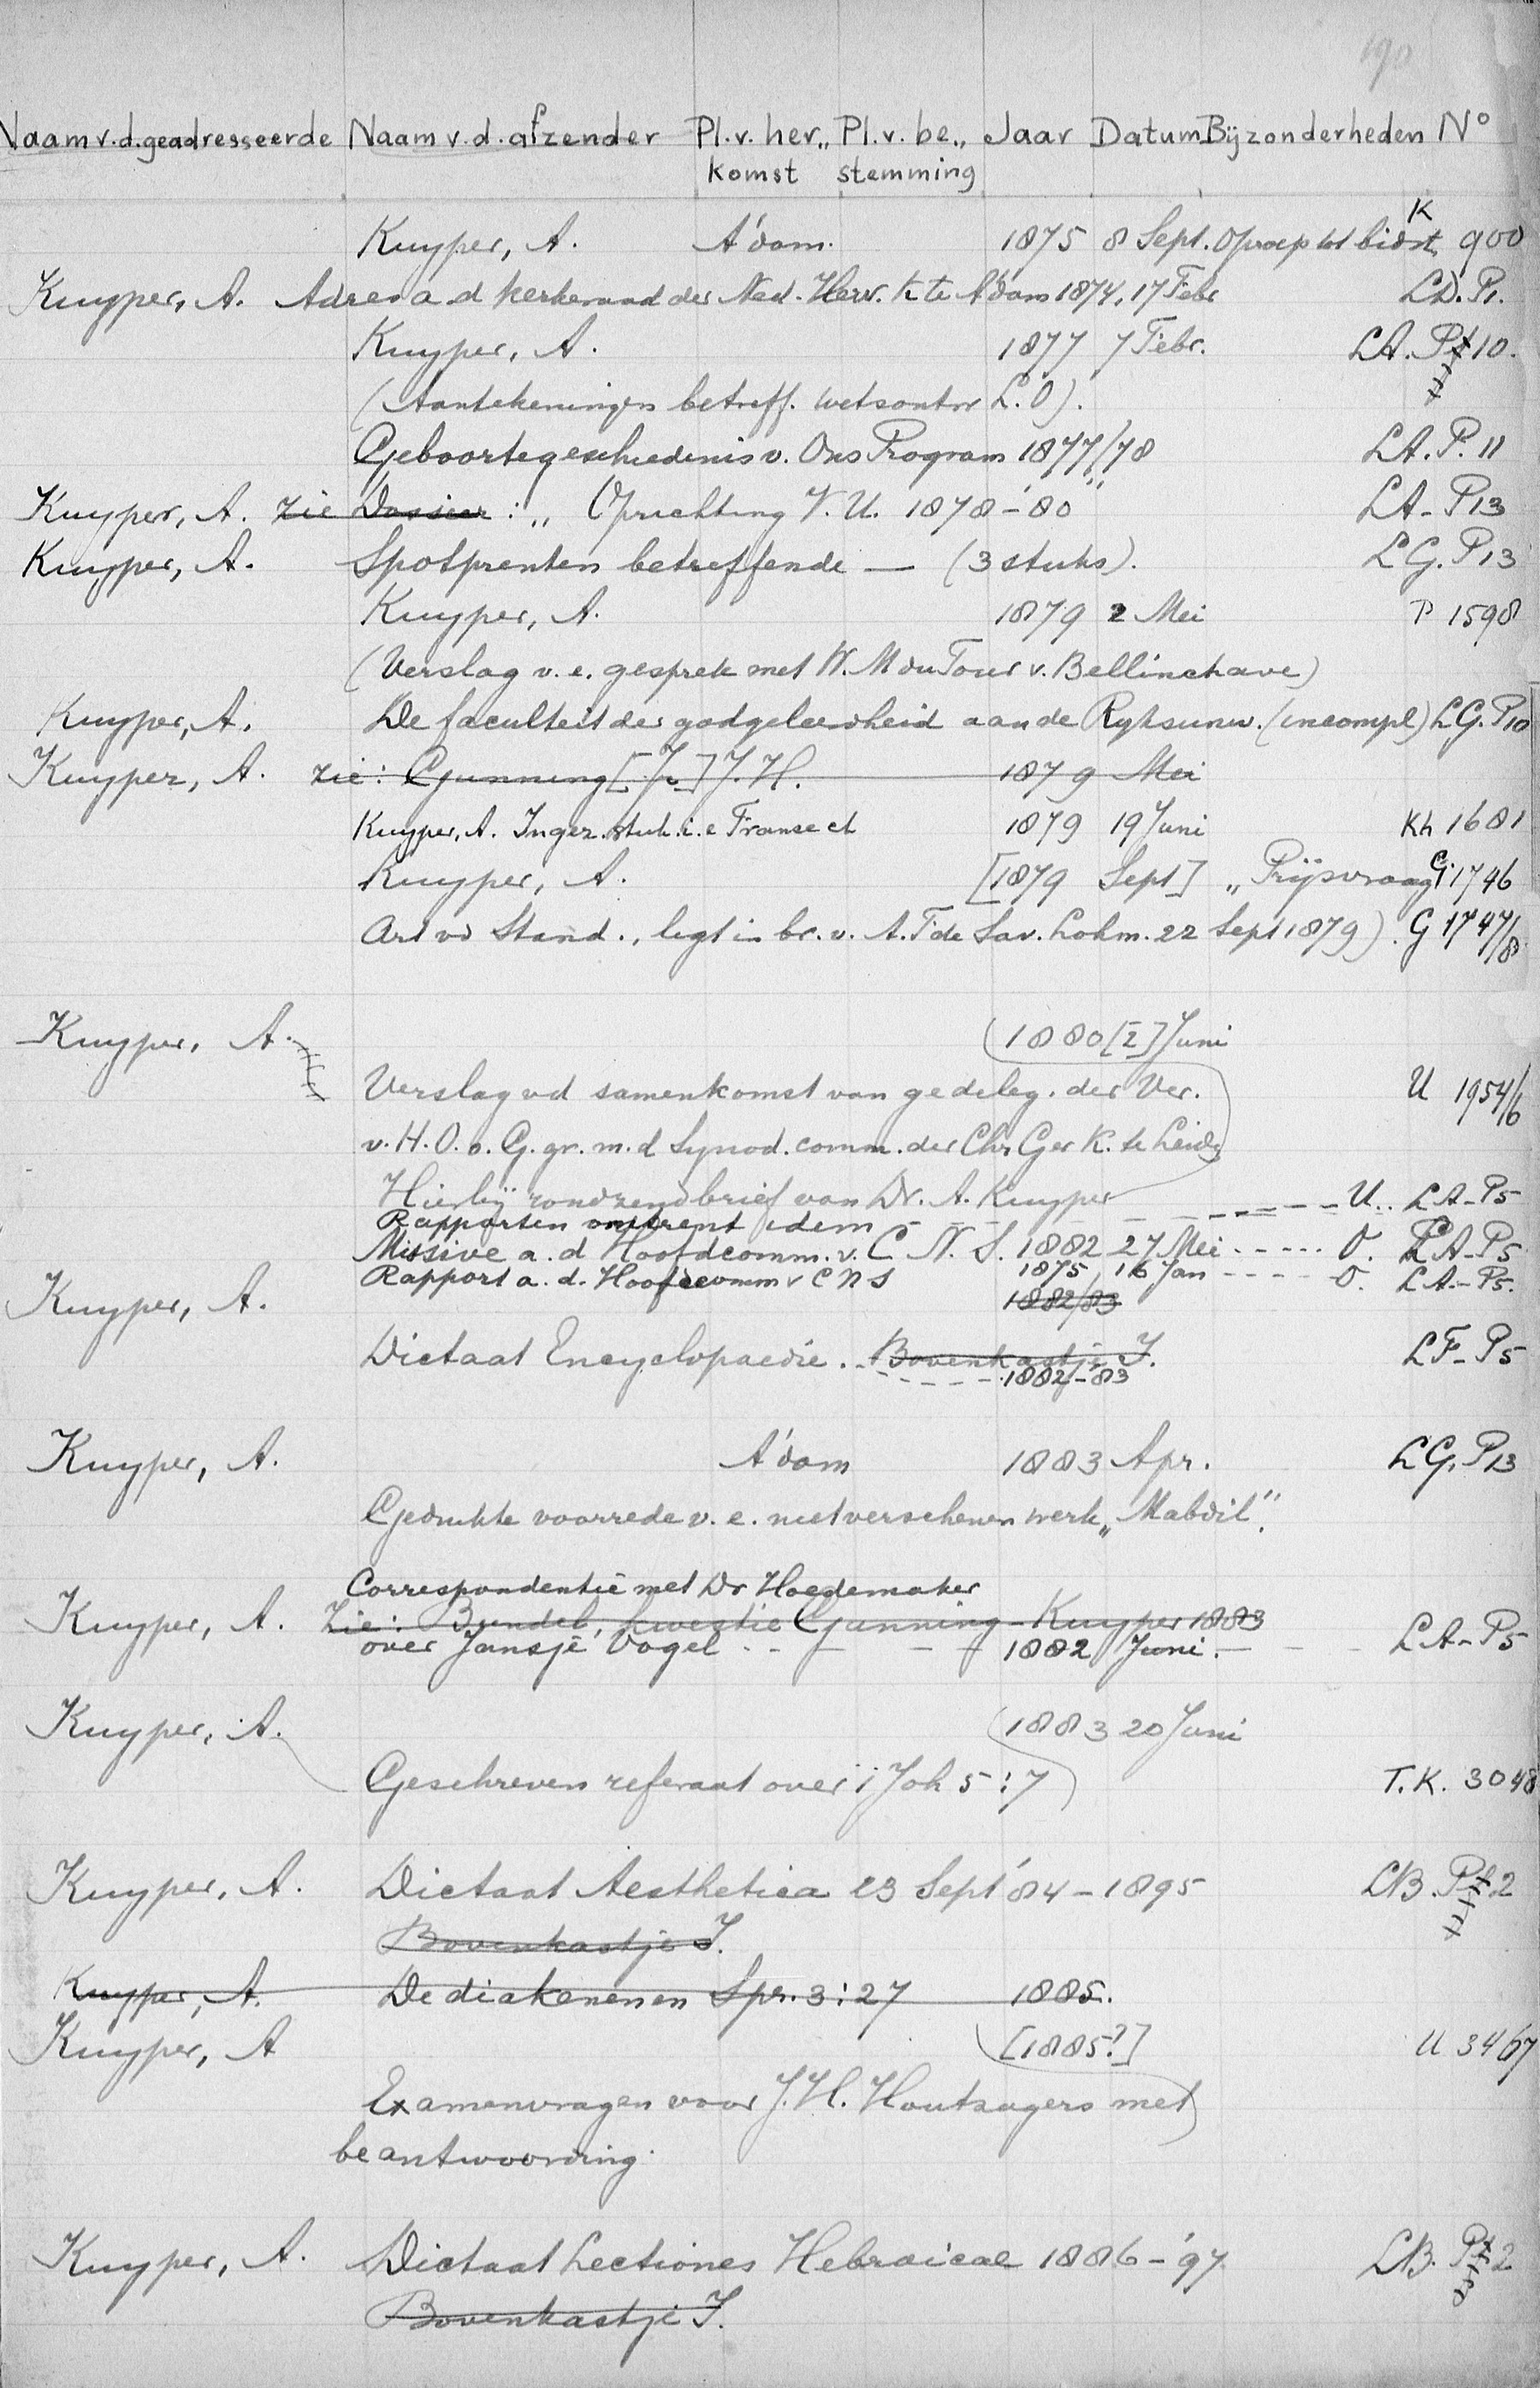 190
Naam v.d. geadresseerde Naam v.d. afzender Pl. v. her„ Pl. v. be„ Jaar Datum Bijzonderheden No
komst stemming
Kuyper, A. A'dam. 1875 8 Sept. Oproep tot bidst. K 900
Kuyper, A. Adres a.d kerkeraad der Ned. Herv. K te A'dam 1874, 17 Febr LD. P1.
Kuyper, A. 1877 7 Febr. LA. P 10.
(Aantekeningen betreff. wetsontw L.O).
Geboortegeschiedenis v. Ons Program 1877/78 LA. P. 11
Kuyper, A. zie Dossier: „ Oprichting V.U. 1878-'80" LA-P13
Kuyper, A. Spotprenten betreffende — (3 stuks). LG. P13
Kuyper, A. 1879 2 Mei P 1598
(Verslag v. e. gesprek met W. M du Tour v. Bellinchave)
Kuyper, A. De faculteit der godgeleerdheid aan de Ryksunw. (incompl) LG. P10
Kuyper, A. zie: Gunning [Jr.] J.H. 1879 Mei
Kuyper, A. Ingez. stuk. i. e Franse ct 1879 19 Juni Kh 1681
Kuyper, A. [1879 Sept] „Prijsvraag G 1746
Art vd Stand., ligt in br. v. A. F de Sav. Lohm. 22 Sept 1879). G 1747/8
Kuyper, A. (1880 [2] Juni
Verslag vd samenkomst van gedeleg. der Ver. U 1954/6
v. H.O. o. G. gr. m. d Synod. comm. der Chr Ger K. te Leid
Hierbij rondzendbrief van Dr. A. Kuyper U.. LA-P5
Rapporten omtrent idem
Missive a. d Hoofdcomm. v. C N. S. 1882 27 Mei ..... O. LA-P5
Rapport a. d. Hoofdcomm v C N S 1875, 16 Jan ---- O. LA-P5.
Kuyper, A. 1882/83
Dictaat Encyclopaedie. Bovenkastje I. LF-P5
1882-83
Kuyper, A. A'dam 1883 Apr. LG. P13
Gedrukte voorrede v. e. niet verschenen werk „Mabdil".
Correspondentie met Dr Hoedemaker
Kuyper, A. Zie: Bundel, kwestie Gunning-Kuyper 1883
over Jansje Vogel -- 1882 Juni. LA-P5
Kuyper, A. (1883 20 Juni
Geschreven referaat over 1 Joh 5:7) T.K. 3048
Kuyper, A. Dictaat Aesthetica 23 Sept '84-1895 LB. P 2
Bovenkastje I.
Kuyper, A. De diakenen en Spr. 3:27 1885.
Kuyper, A [1885?] U 3467
Examenvragen voor J. H. Houtzagers met
beantwoording.
Kuyper, A. Dictaat Lectiones Hebraicae 1886-'97 LB. P 2
Bovenkastje I.